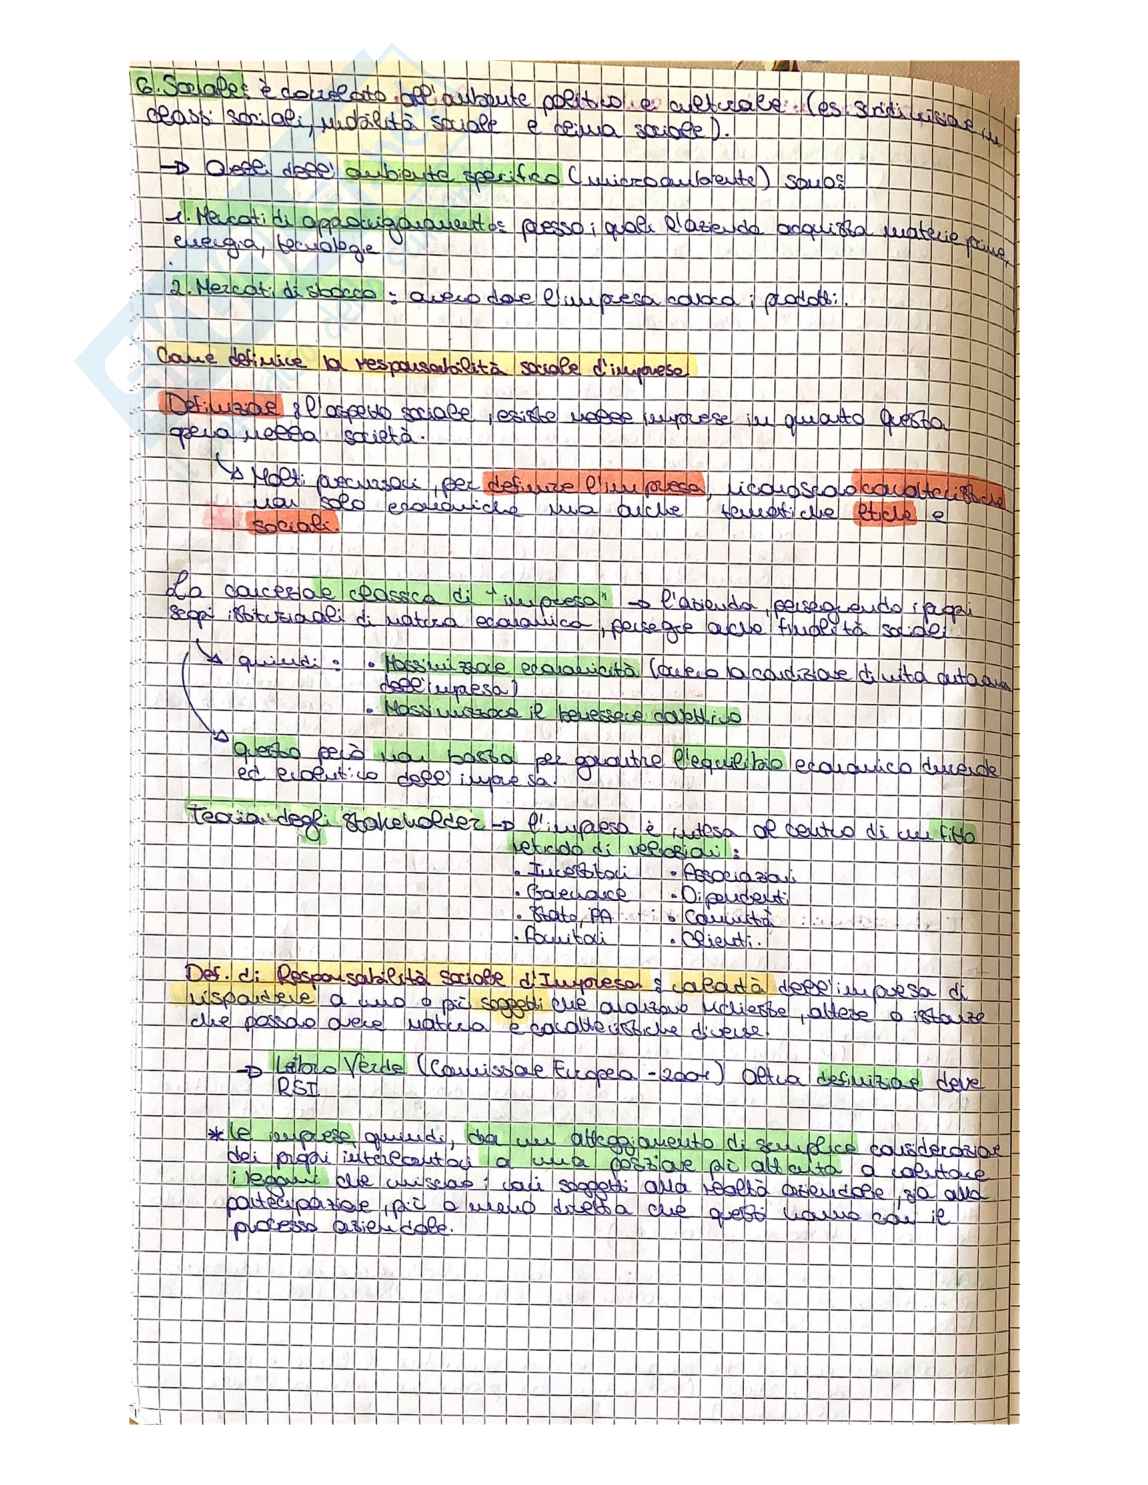 6. Sociale: è correlato all'ambiente politico e culturale (es. suddivisione in
classi sociali, mobilità sociale e clima sociale).
→ Quelli dell'ambiente specifico (microambiente) sono:
1. Mercati di approvvigionamento: presso i quali l'azienda acquista materie prime,
energia, tecnologie
2. Mercati di sbocco: ovvero dove l'impresa colloca i prodotti.
Come definire la responsabilità sociale d'imprese
Definizione: l'aspetto sociale, esiste nelle imprese in quanto questa
opera nella società.
↳ Molti precursori, per definire l'impresa, riconoscono caratteristiche
non solo economiche ma anche tematiche etiche e
sociali.
La concezione classica di "impresa" → l'azienda, perseguendo i propri
scopi istituzionali di natura economica, persegue anche finalità sociali
↳ quindi: • Massimizzare economicità (ovvero la condizione di vita autonoma
dell'impresa)
• Massimizzare il benessere collettivo
↳ questo però non basta per garantire l'equilibrio economico durevole
ed evolutivo dell'impresa.
Teoria degli Stakeholder → l'impresa è intesa al centro di un fitto
reticolo di relazioni:
• Investitori • Associazioni
• Governance • Dipendenti
• Stato, PA • Comunità
• Fornitori • Clienti.
Def. di Responsabilità sociale d'Impresa: capacità dell'impresa di
rispondere a uno o più soggetti che avanzano richieste, attese o istanze
che possono avere natura e caratteristiche diverse.
→ Libro Verde (Commissione Europea - 2001) altra definizione deve
RSI
* le imprese quindi, da un atteggiamento di semplice considerazione
dei propri interlocutori a una posizione più attenta a valutare
i legami che uniscono i vari soggetti alla realtà aziendale, sia alla
partecipazione, più o meno diretta che questi hanno con il
processo aziendale.